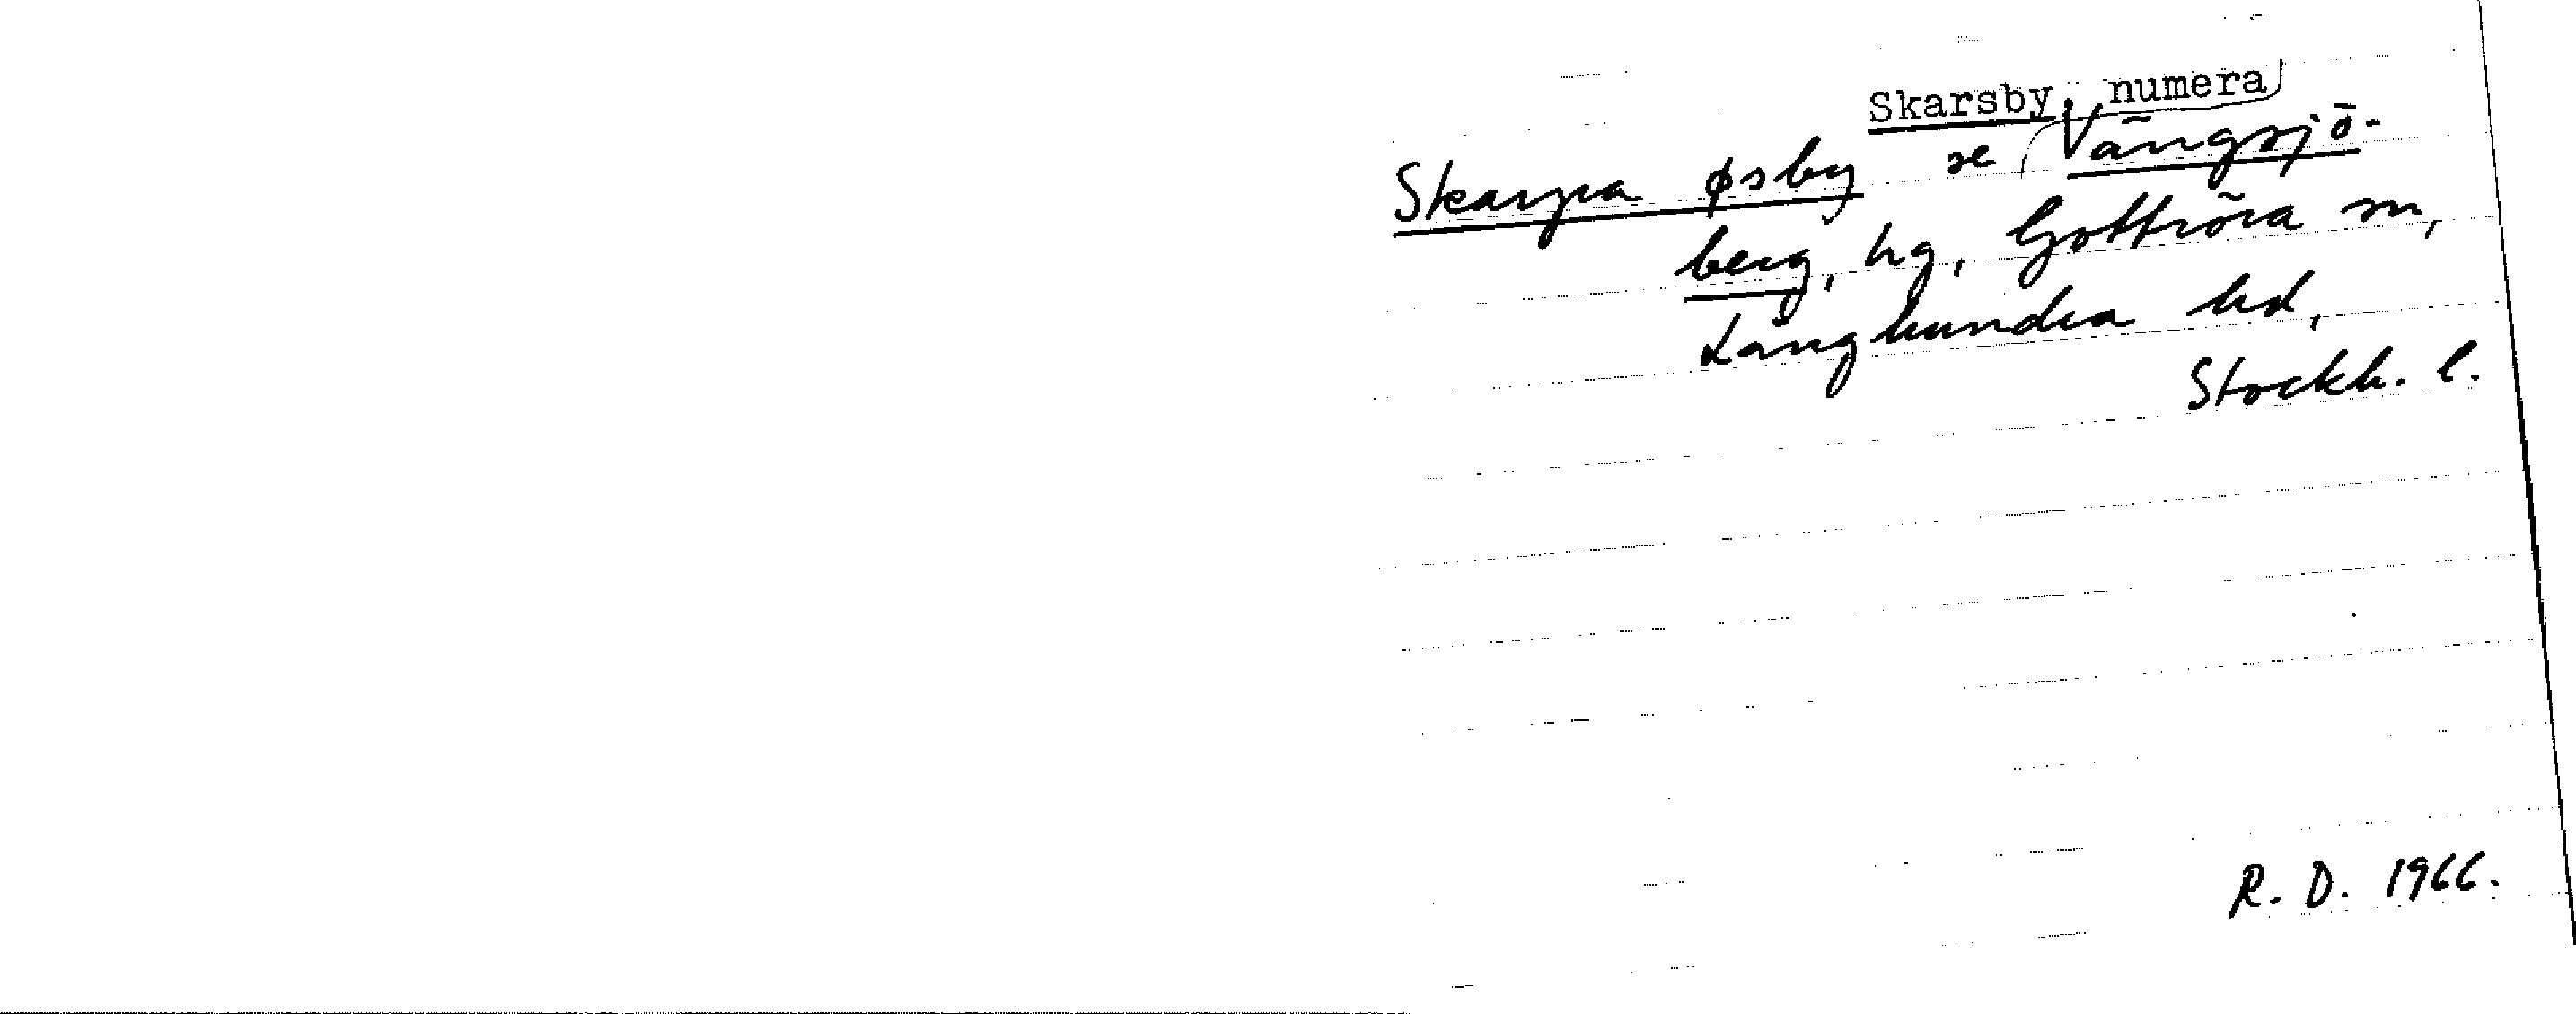 Skarsby, numera
Skarpa øsby se Vängsjö-
berg, hg, Gottröra sn,
Långhundra hd,
Stockh. l.
R. D. 1966.